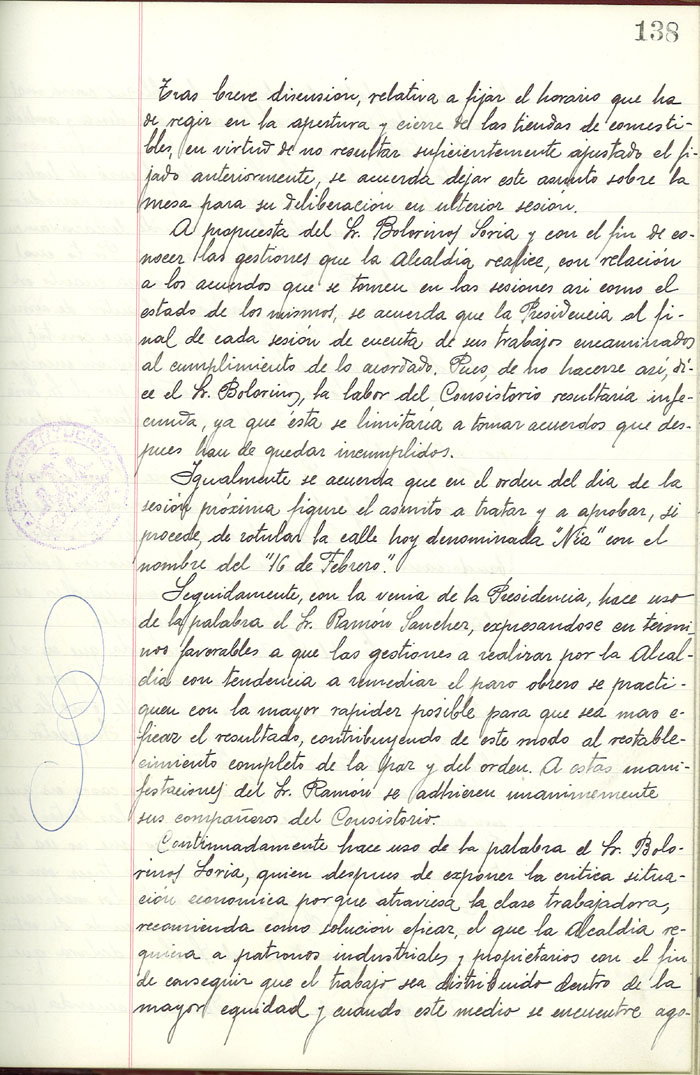 138
Tras breve discusión, relativa a fijar el horario que ha
de regir en la apertura y cierre de las tiendas de comesti-
bles, en virtud de no resultar suficientemente ajustado el fi-
jado anteriormente, se acuerda dejar este asunto sobre la
mesa para su deliberación en ulterior sesión.
A propuesta del Sr. Bolorinos Soria y con el fin de co-
nocer las gestiones que la Alcaldía realice, con relación
a los acuerdos que se tomen en las sesiones asi como el
estado de los mismos, se acuerda que la Presidencia al fi-
nal de cada sesión de cuenta de sus trabajos encaminados
al cumplimiento de lo acordado. Pues, de no hacerse así, di-
ce el Sr. Bolorinos, la labor del Consistorio resultaría infe-
cunda, ya que ésta se limitaría a tomar acuerdos que des-
pues han de quedar incumplidos.
Igualmente se acuerda que en el orden del dia de la
sesión próxima figure el asunto a tratar y a aprobar, si
procede, de rotular la calle hoy denominada "Nia" con el
nombre del "16 de Febrero".
Seguidamente, con la venia de la Presidencia, hace uso
de la palabra el Sr. Ramón Sanchez, expresandose en termi
nos favorables a que las gestiones a realizar por la Alcal-
día con tendencia a remediar el paro obrero se practi-
quen con la mayor rapidez posible para que sea mas e-
ficaz el resultado, contribuyendo de este modo al restable-
cimiento completo de la paz y del orden. A estas mani-
festaciones del Sr. Ramón se adhieren unanimemente
sus compañeros del Consistorio.
Continuadamente hace uso de la palabra el Sr. Bolo-
rinos Soria, quien despues de exponer la critica situa-
ción economica porque atraviesa la clase trabajadora,
recomienda como solución eficaz, el que la Alcaldía re-
quiera a patronos industriales y propietarios con el fin
de conseguir que el trabajo sea distribuido dentro de la
mayor equidad y cuando este medio se encuentre ago-